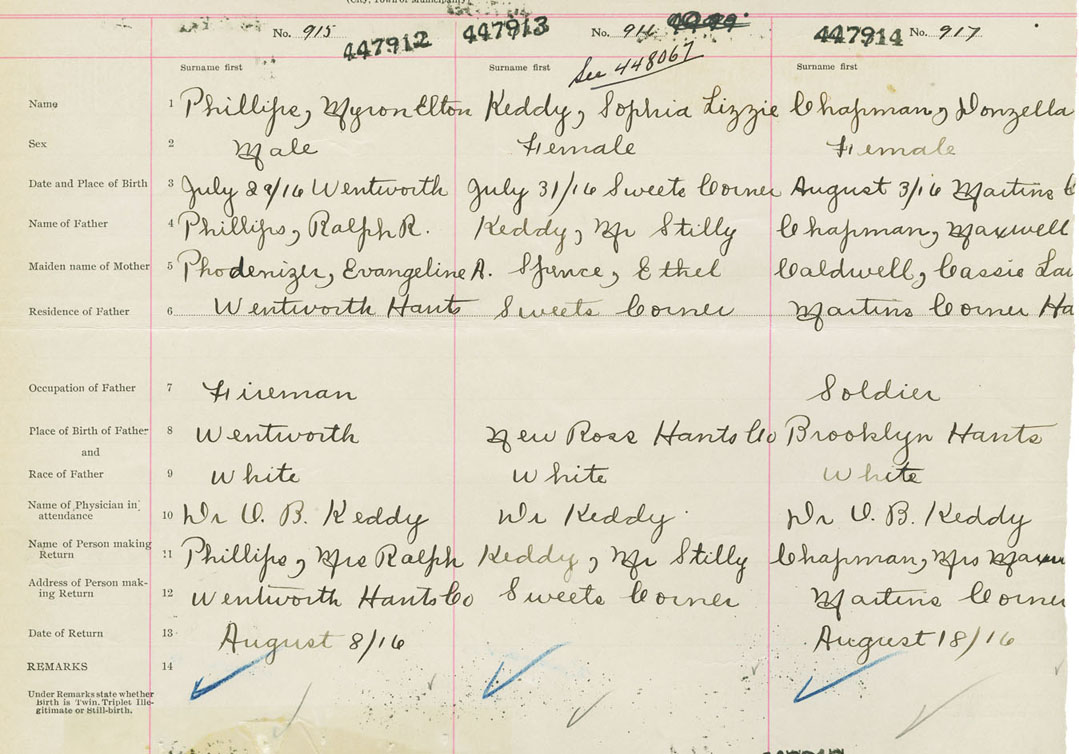 (City, Town or Municipality)
No. 915 447912 447913 No. 916 447914 No. 917
See 448067
Surname first Surname first Surname first
Name 1 Phillips, Myron Elton Keddy, Sophia Lizzie Chapman, Donzella
Sex 2 Male Female Female
Date and Place of Birth 3 July 29/16 Wentworth July 31/16 Sweets Corner August 3/16 Martins
Name of Father 4 Phillips, Ralph R. Keddy, Mr Stilly Chapman, Maxwell
Maiden name of Mother 5 Phodenizer, Evangeline A. Spence, Ethel Caldwell, Cassie
Residence of Father 6 Wentworth Hants Sweets Corner Martins Corner Ha
Occupation of Father 7 Fireman Soldier
Place of Birth of Father 8 Wentworth New Ross Hants Co Brooklyn Hants
and
Race of Father 9 White White White
Name of Physician in
attendance 10 Dr O. B. Keddy Dr Keddy Dr O. B. Keddy
Name of Person making
Return 11 Phillips, Mrs Ralph Keddy, Mr Stilly Chapman, Mrs
Address of Person mak-
ing Return 12 Wentworth Hants Co Sweets Corner Martins Corner
Date of Return 13 August 8/16 August 18/16
REMARKS 14
Under Remarks state whether
Birth is Twin, Triplet Ille-
gitimate or Still-birth.